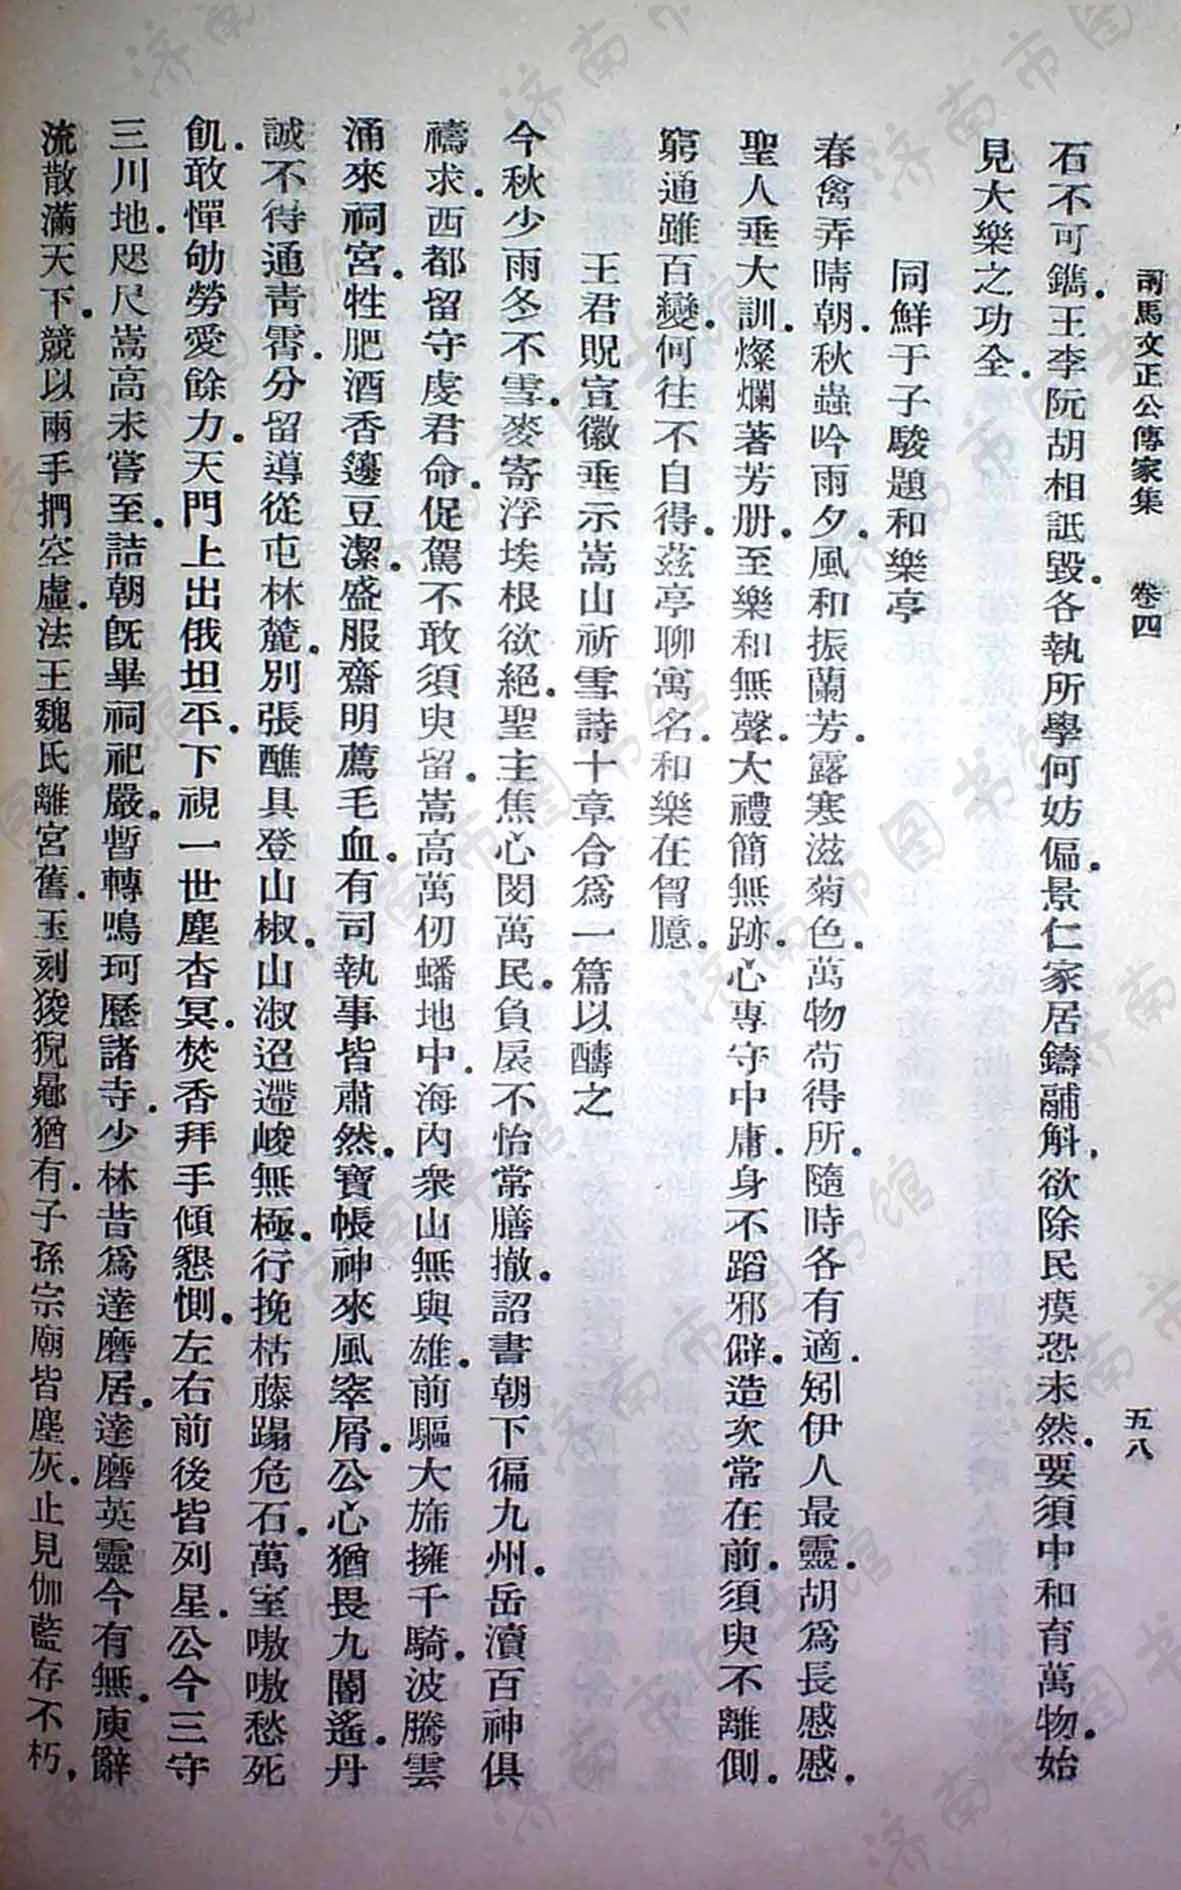 司馬文正公傳家集　卷四　五八
石不可鐫.王李阮胡相詆毀.各執所學何妨偏.景仁家居鑄鬴斛.欲除民瘼恐未然.要須中和育萬物.始
見大樂之功全.
同鮮于子駿題和樂亭
春禽弄晴朝.秋蟲吟雨夕.風和振蘭芳.露寒滋菊色.萬物苟得所.隨時各有適.矧伊人最靈.胡爲長慼慼.
聖人垂大訓.燦爛著芳册.至樂和無聲.大禮簡無跡.心專守中庸.身不蹈邪僻.造次常在前.須臾不離側.
窮通雖百變.何往不自得.茲亭聊寓名.和樂在胷臆.
王君貺宣徽垂示嵩山祈雪詩十章合爲一篇以醻之
今秋少雨冬不雪.麥寄浮埃根欲絕.聖主焦心閔萬民.負扆不怡常膳撤.詔書朝下徧九州.岳瀆百神俱
禱求.西都留守虔君命.促駕不敢須臾留.嵩高萬仞蟠地中.海內衆山無與雄.前驅大旆擁千騎.波騰雲
涌來祠宮.牲肥酒香籩豆潔.盛服齋明薦毛血.有司執事皆肅然.寶帳神來風窣屑.公心猶畏九關遙.丹
誠不得通靑霄.分留導從屯林麓.別張醮具登山椒.山淑迢遰峻無極.行挽枯藤蹋危石.萬室嗷嗷愁死
飢.敢憚劬勞愛餘力.天門上出俄坦平.下視一世塵杳冥.焚香拜手傾懇惻.左右前後皆列星.公今三守
三川地.咫尺嵩高未嘗至.詰朝旣畢祠祀嚴.暫轉鳴珂歷諸寺.少林昔爲達磨居.達磨英靈今有無.庾辭
流散滿天下.競以兩手捫空虛.法王魏氏離宮舊.玉刻狻猊鼎猶有.子孫宗廟皆塵灰.止見伽藍存不朽.